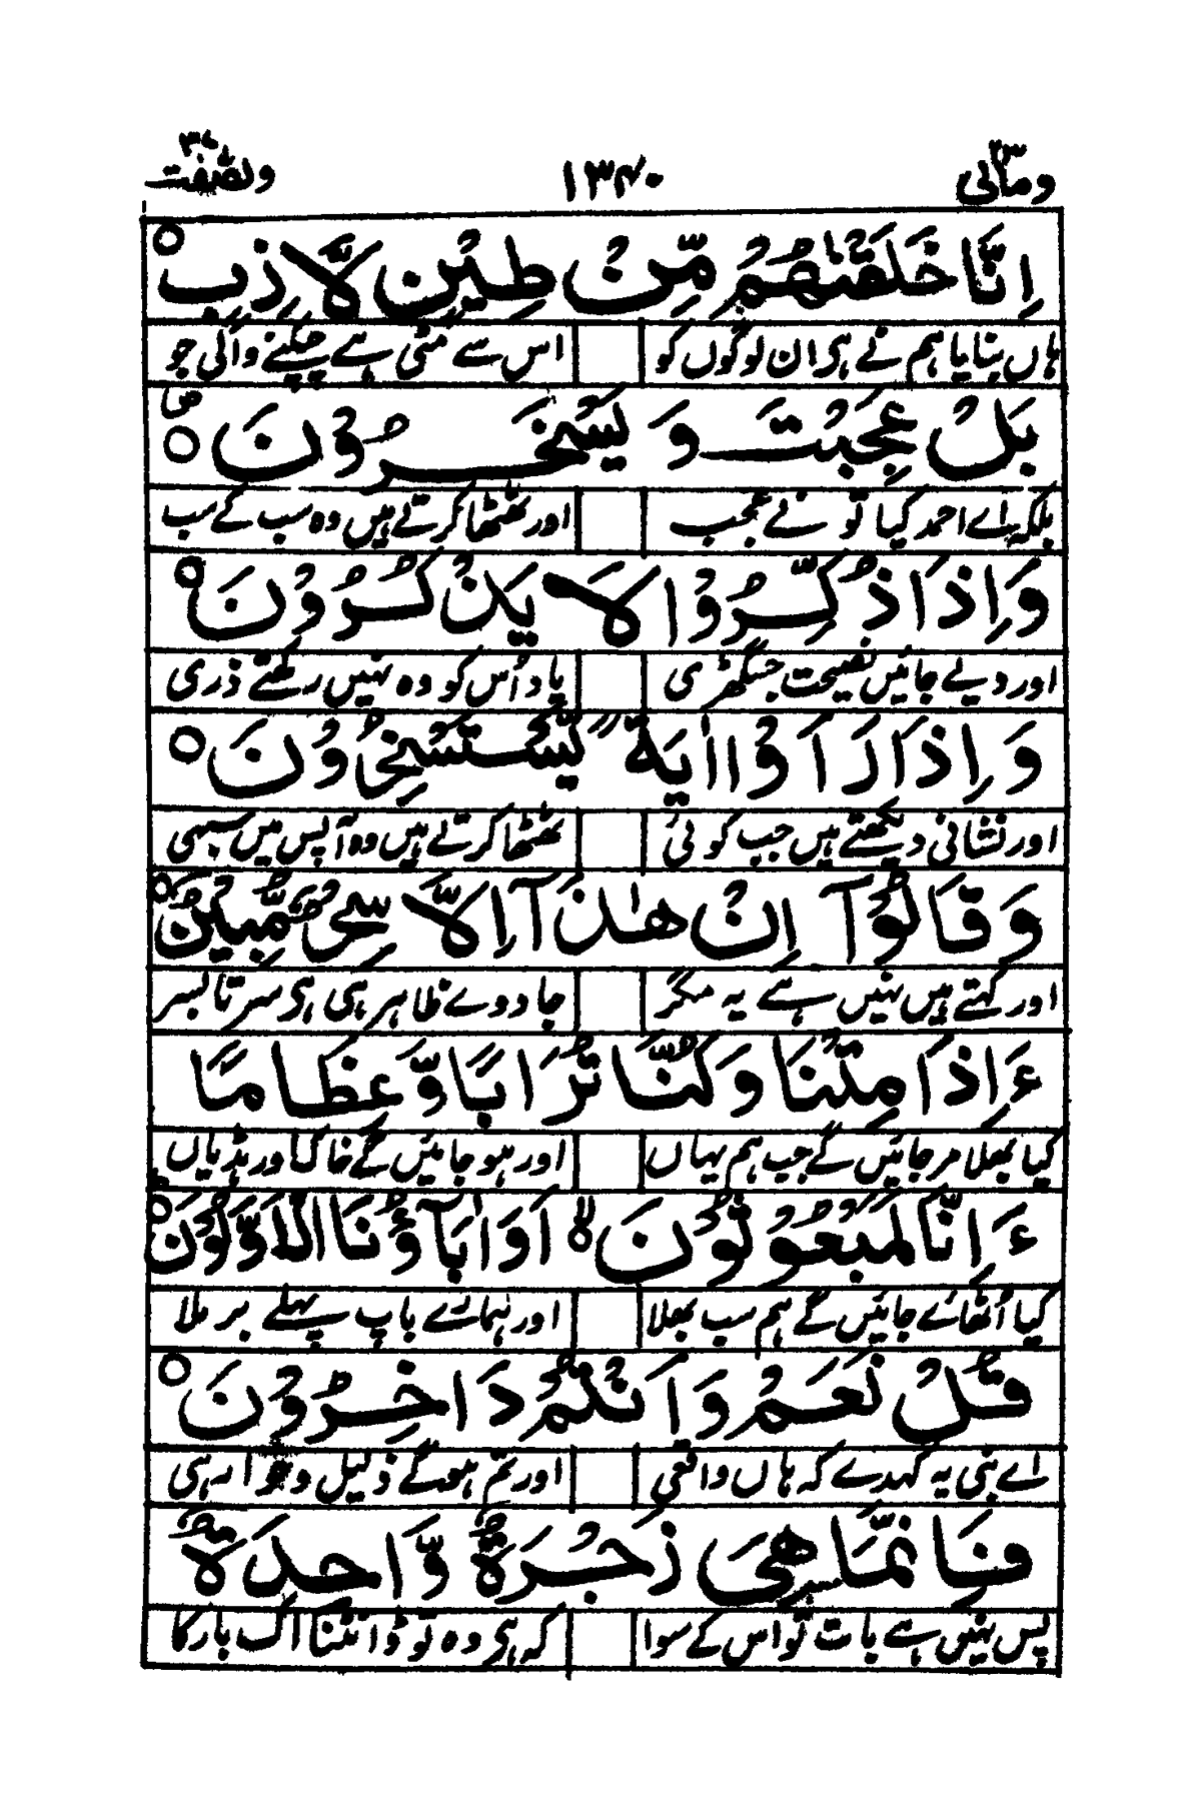 ومالی ۲۳ ۱۳۴۰ والصّٰفّٰت ۳۷
اِنَّا خَلَقْنٰهُمْ مِّنْ طِیْنٍ لَّازِبٍ ○
ہاں بنایا ہم نے ہی ان لوگوں کو اس سے مٹی ہے چکنے والی جو
بَلْ عَجِبْتَ وَ یَسْخَرُوْنَ ○ ص
بلکہ اے احمد کیا تو نے عجب اور ٹھٹھا کرتے ہیں وہ سب کے سب
وَ اِذَا ذُكِّرُوْا لَا یَذْكُرُوْنَ ○
اور دیے جائیں نصیحت جس گھڑی یاد اُس کو وہ نہیں رکھتے ذری
وَ اِذَا رَاَوْا اٰیَةً یَّسْتَسْخِرُوْنَ ○
اور نشانی دیکھتے ہیں جب کوئی ٹھٹھا کرتے ہیں وہ آپس میں سبھی
وَ قَالُوْۤا اِنْ هٰذَاۤ اِلَّا سِحْرٌ مُّبِیْنٌ ○
اور کہتے ہیں نہیں ہے یہ مگر جادوے ظاہر ہی ہی سر تا بسر
ءَاِذَا مِتْنَا وَ كُنَّا تُرَابًا وَّ عِظَامًا
کیا بھلا مر جائیں گے جب ہم یہاں اور ہو جائیں گے خاک اور ہڈیاں
ءَاِنَّا لَمَبْعُوْثُوْنَ ○ اَوَ اٰبَآؤُنَا الْاَوَّلُوْنَ ○
کیا اُٹھائے جائیں گے ہم سب بھلا اور ہمارے باپ پہلے بر ملا
قُلْ نَعَمْ وَ اَنْتُمْ دَاخِرُوْنَ ○
اے نبی یہ کہدے کہ ہاں واقعی اور تم ہوگے ذلیل و ہی
فَاِنَّمَا هِیَ زَجْرَةٌ وَّاحِدَةٌ
پس نہیں ہے بات تو اس کے سوا کہ ہی وہ تو ڈانٹنا اک بار کا